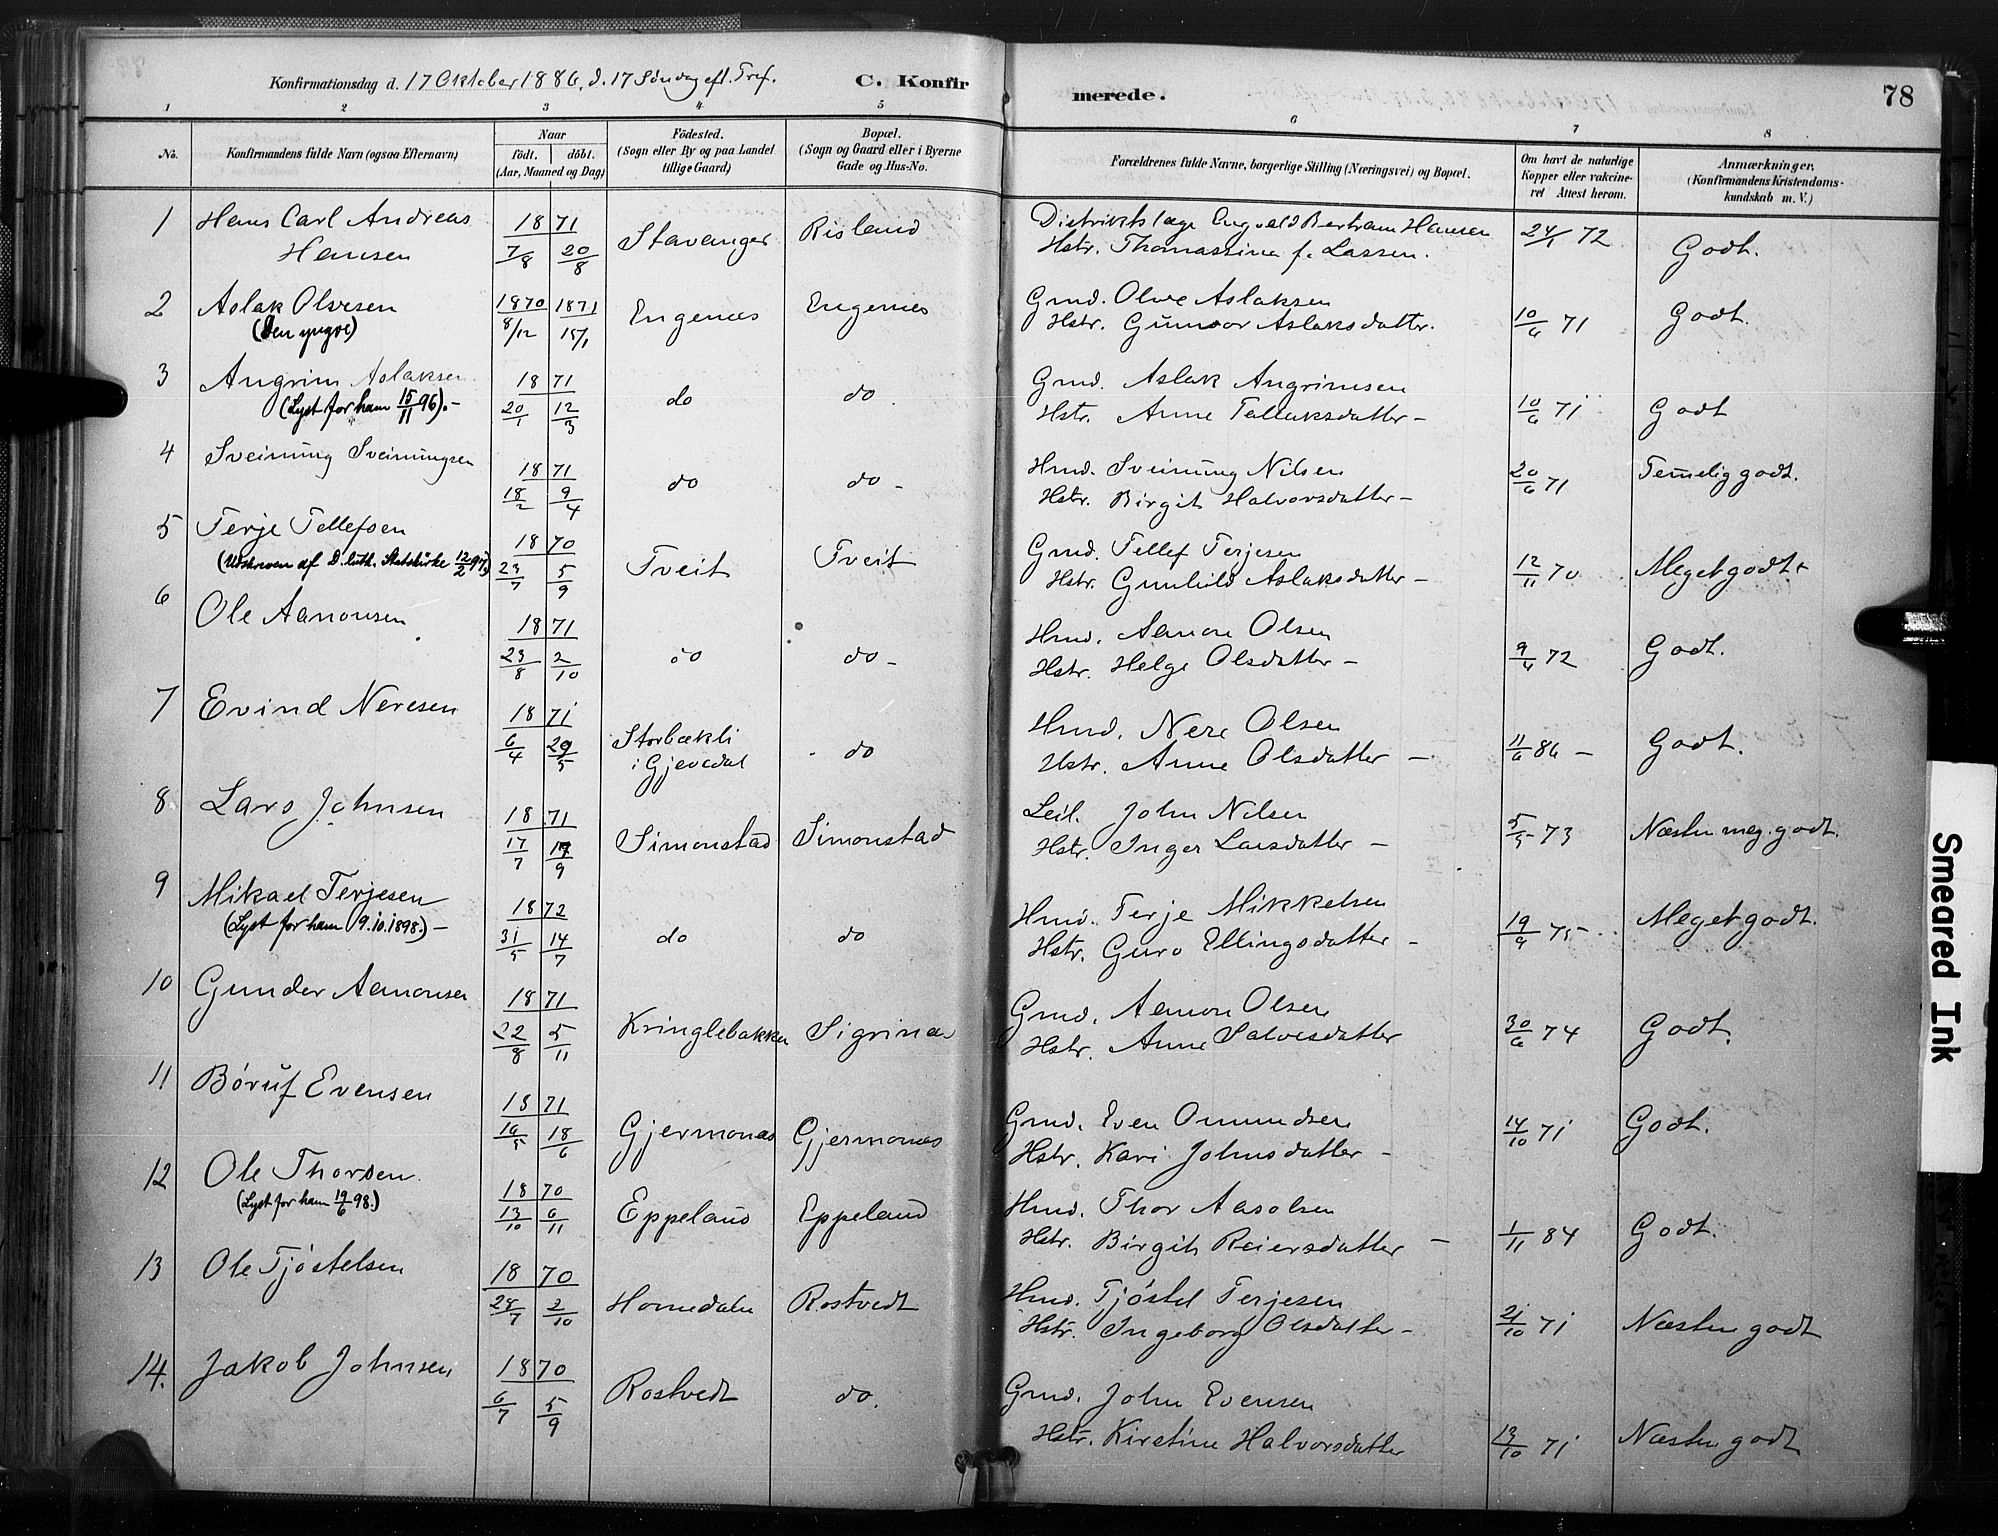 Konfirmationsdag d. 17 Oktober 1886, d. 17 Søndag eft. Tref. C. Konfir
merede. 78
1 2 3 4 5 6 7 8
No.
Konfirmandens fulde Navn (ogsaa Efternavn)
Naar
født. døbt.
(Aar, Maaned og Dag)
Födested.
(Sogn eller By og paa Landet
tillige Gaard)
Bopæl.
(Sogn og Gaard eller i Byerne
Gade og Hus-No.
Forældrenes fulde Navne, borgerlige Stilling (Næringsvei) og Bopæl.
Om havt de naturlige
Kopper eller vakcine-
ret Attest herom.
Anmærkninger,
(Konfirmandens Kristendoms-
kundskab m. V.)
1 Hans Carl Andreas 18 71 Stavanger Risland Distriktslæge Engvald Bertram Hansen 24/1 72 Godt.
Hansen 7/8 20/8 Hstr. Thomassine f. Lassen.
2 Aslak Olvesen 1870 1871 Engenes Engenes Gmd. Olve Aslaksen 10/6 71 Godt.
(den yngre) 8/12 15/1 Hstr. Gunvor Aslaksdatter.
3 Angrim Aslaksen 18 71 do do Gmd. Aslak Angrimsen 10/6 71 Godt
(Lyst for ham 15/11 96).- 20/1 12/3 Hstr. Anne Tellaksdatter -
4 Sveinung Sveinungsen 18 71 do do - Hmd. Sveinung Nilsen 20/6 71 Temelig godt.
18/2 9/4 Hstr. Birgit Halvorsdatter -
5 Terje Tellefsen 18 70 Tveit Tveit Gmd. Tellef Terjesen 12/11 70 Meget godt
(Udskreven af D. luth. Statskirke 12/2 97) 23/7 5/9 Hstr. Gunhild Aslaksdatter -
6 Ole Aamonsen 18 71 do do - Hmd. Aamon Olsen 9/4 72 Godt.
23/8 2/10 Hstr. Helge Olsdatter -
7 Evind Neresen 18 71 Storbækli do Hmd. Nere Olsen 11/6 86 - Godt.
6/4 29/5 i Gjevedal Hstr. Anne Olsdatter -
8 Lars Johnsen 18 71 Simonstad Simonstad Leil. John Nilsen 5/5 73 Næsten meg. godt.
17/7 /9 Hstr. Inger Larsdatter -
9 Mikael Terjesen 18 72 do do Hmd. Terje Mikkelsen 19/9 75 Meget godt.
(Lyst for ham 9.10.1898.) - 31/5 14/7 Hstr. Guro Ellingsdatter -
10 Gunder Aamonsen 18 71 Kringlebakken Sigrinæs Gmd. Aamon Olsen 30/6 74 Godt.
22/8 5/11 Hstr. Anne Salvesdatter
11 Børuf Evensen 18 71 Gjermonæs Gjermonæs Gmd. Even Omundsen 14/10 71 Godt.
16/5 18/6 Hstr. Kari Johnsdatter -
12 Ole Thorsen 18 70 Eppeland Eppeland Hmd. Thor Aasolsen 1/11 84 Godt.
(Lyst for ham 19/6 98.) 13/10 6/11 Hstr. Birgit Reiersdatter -
13 Ole Tjøstelsen 18 70 Homdalen Rostvedt Hmd. Tjøstel Terjesen 21/10 71 Næsten godt
28/7 2/10 Hstr. Ingeborg Olsdatter -
14. Jakob Johnsen 18 70 Rostvedt do. Gmd. John Evensen 13/10 71 Næsten godt
6/7 5/9 Hstr. Kirstine Halvorsdatter
Smeared Ink